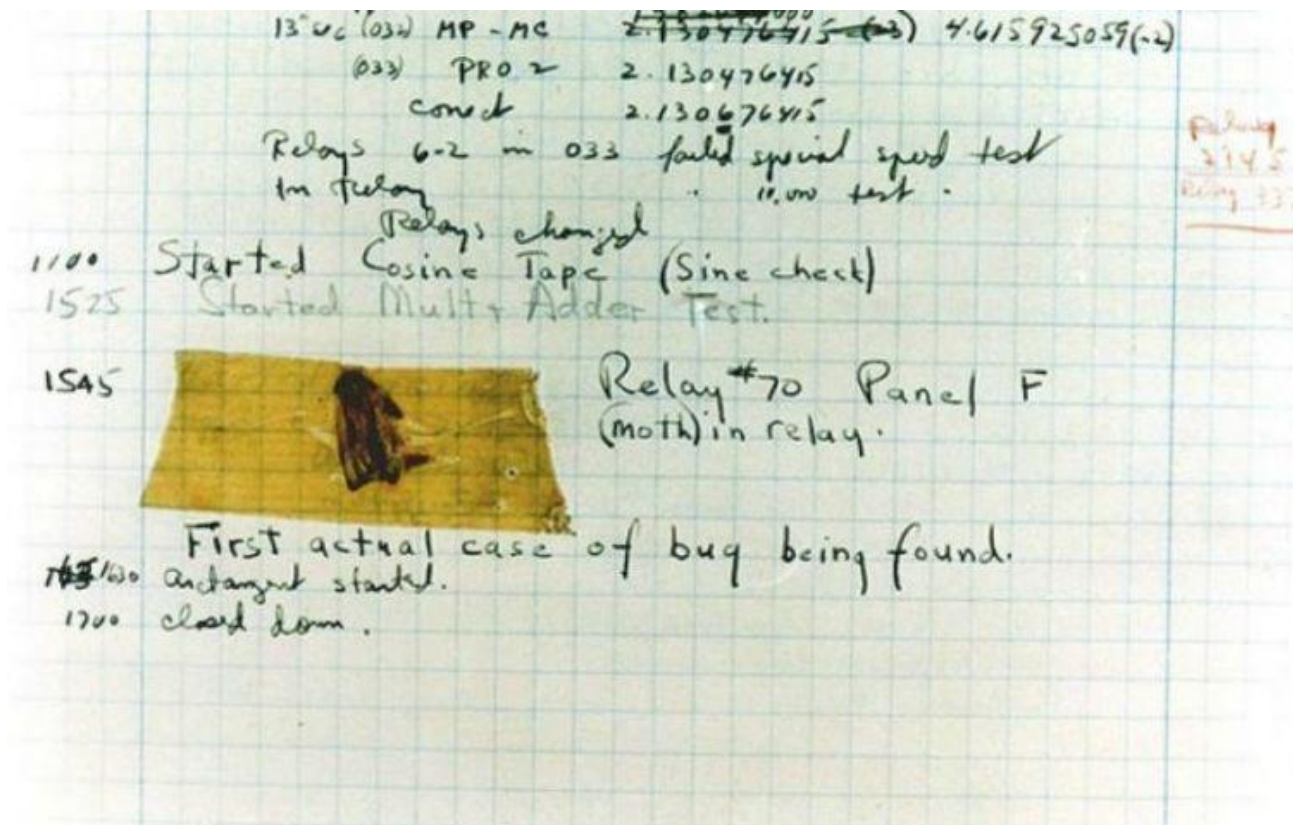 13"uc (032) MP - MC 2.130476415 (-3) 4.615925059(-2)
(033) PRO 2 2.130476415
conect 2.130676415
Relays 6-2 in 033 failed special speed test
In Relay " 10,000 test .
Relays changed
1100 Started Cosine Tape (Sine check)
1525 Started Mult + Adder Test.
1545 Relay #70 Panel F
(moth) in relay.
First actual case of bug being found.
1630 arctangent started.
1700 closed down .
Relay
2145
Relay